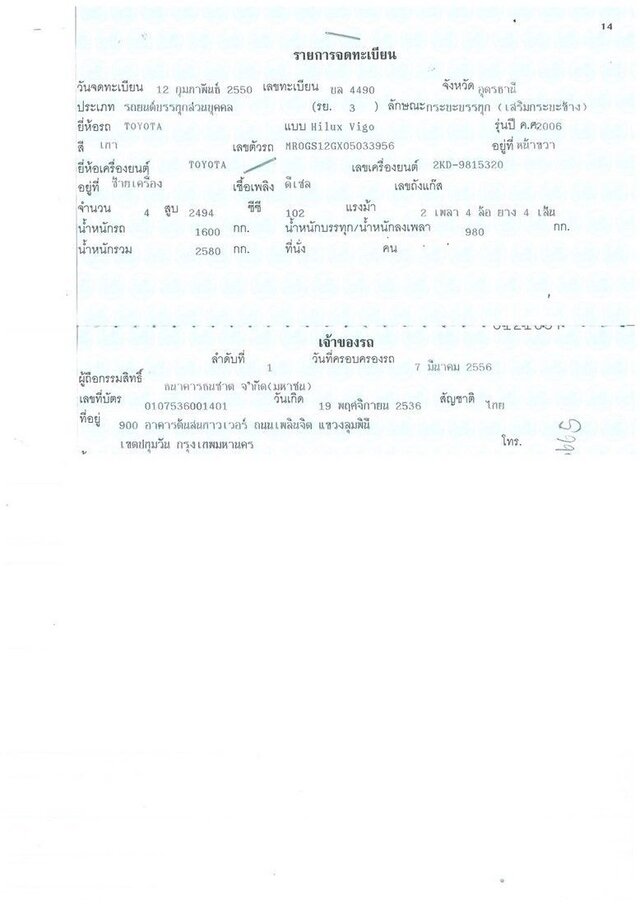 14
รายการจดทะเบียน
วันจดทะเบียน 12 กุมภาพันธ์ 2550 เลขทะเบียน บล 4490 จังหวัด อุดรธานี
ประเภท รถยนต์บรรทุกส่วนบุคคล (รย. 3 ) ลักษณะกระบะบรรทุก (เสริมกระบะข้าง)
ยี่ห้อรถ TOYOTA แบบ Hilux Vigo รุ่นปี ค.ศ2006
สี เทา เลขตัวรถ MR0GS12GX05033956 อยู่ที่ หน้าขวา
ยี่ห้อเครื่องยนต์ TOYOTA เลขเครื่องยนต์ 2KD-9815320
อยู่ที่ ซ้ายเครื่อง เชื้อเพลิง ดีเซล เลขถังแก๊ส
จำนวน 4 สูบ 2494 ซีซี 102 แรงม้า 2 เพลา 4 ล้อ ยาง 4 เส้น
น้ำหนักรถ 1600 กก. น้ำหนักบรรทุก/น้ำหนักลงเพลา 980 กก.
น้ำหนักรวม 2580 กก. ที่นั่ง คน
เจ้าของรถ
ลำดับที่ 1 วันที่ครอบครองรถ 7 มีนาคม 2556
ผู้ถือกรรมสิทธิ์ ธนาคารธนชาต จำกัด(มหาชน)
เลขที่บัตร 0107536001401 วันเกิด 19 พฤศจิกายน 2536 สัญชาติ ไทย
ที่อยู่ 900 อาคารต้นสนทาวเวอร์ ถนนเพลินจิต แขวงลุมพินี
เขตปทุมวัน กรุงเทพมหานคร โทร.